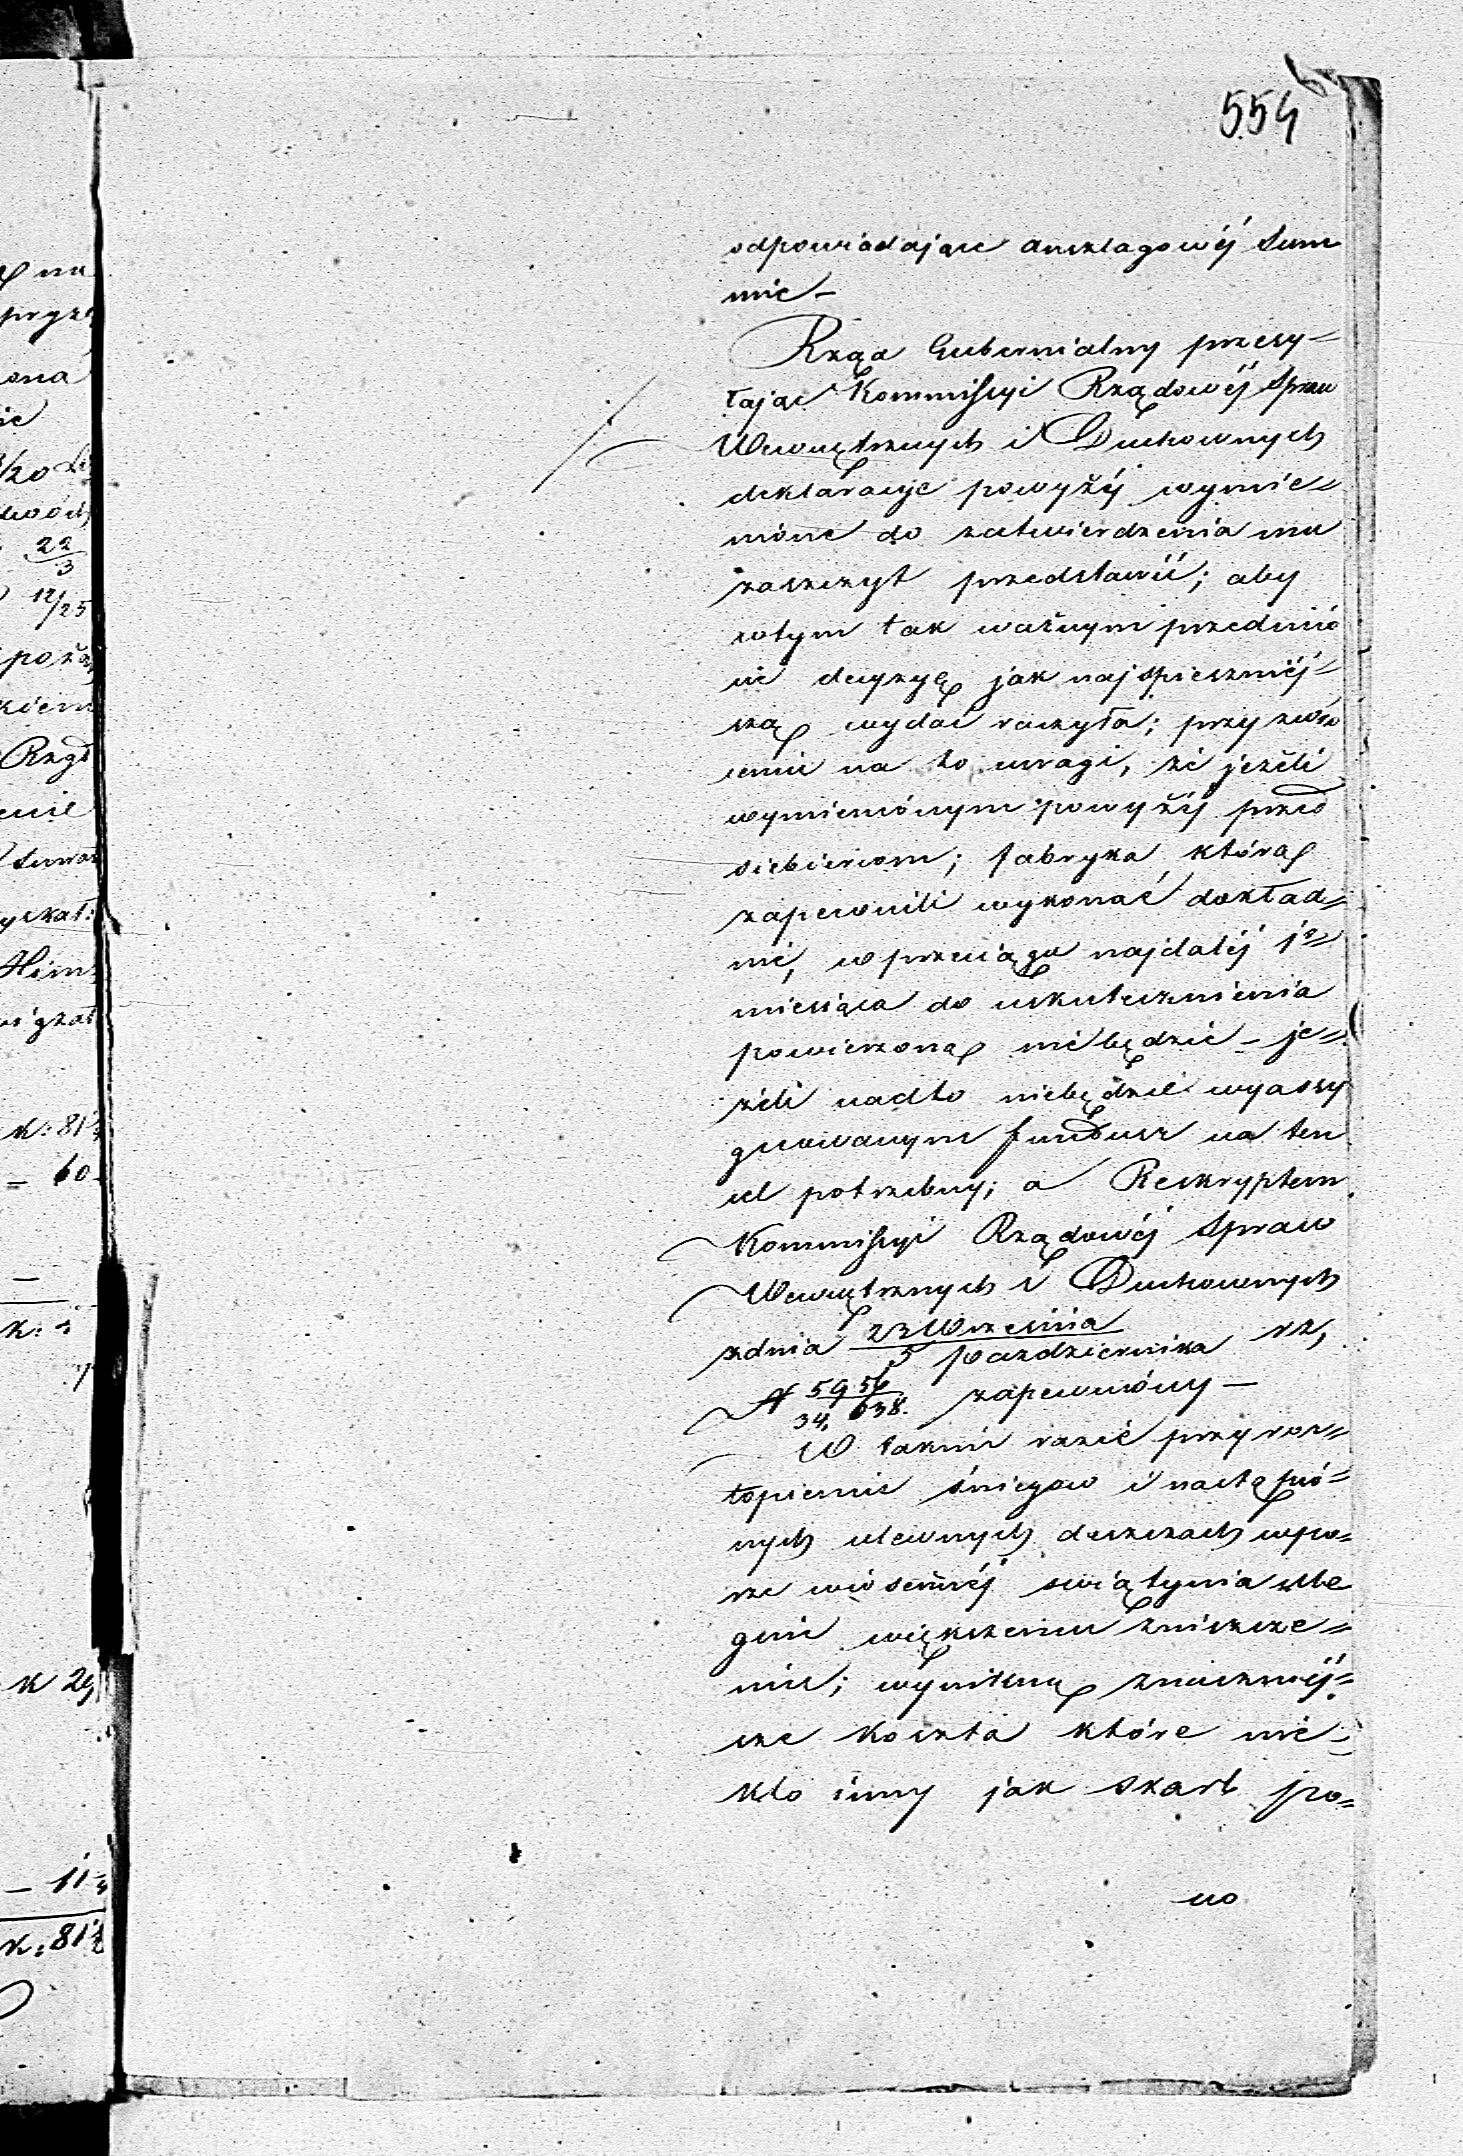 554
odpowiadające anszlagowéj Sum
mie –
Rząd Gubernialny przesy=
łając Kommissyi Rządowéj Spraw
Wewnętrznych i Duchownych
deklaracye powyżéj wymie=
nione do zatwierdzenia ma
zaszczyt przedstawić; aby
w tym tak ważnym przedmio
cie decyzyę jak najspieszniéj=
szą wydać raczyła; przy zwró
ceniu na to uwagi, że jeżeli
wymienionym powyżéj przed
siebiercom; fabryka, którą
zapewnili wykonać dokład=
nie, w przeciągu najdaléj 1º=
miesiąca do uskutecznienia
powierzoną niebędzie – je=
żeli nadto niebędzie wyassy
gnowanym fundusz na ten
cel potrzebny; a Reskryptem
Kommissyi Rządowéj Spraw
Wewnętrznych i Duchownych
z dnia 23 Września / 5 Października rz,
N 5956 / 34,638. zapewniony –
W takim razie przy roz=
topieniu śniegow i nastąpio=
nych ulewnych deszczach w po=
rze wiosennéj swiątynia ule
gnie większemu zniszcze=
niu; wynikną znaczniéj=
sze koszta które nie=
kto inny jak skarb po=
no